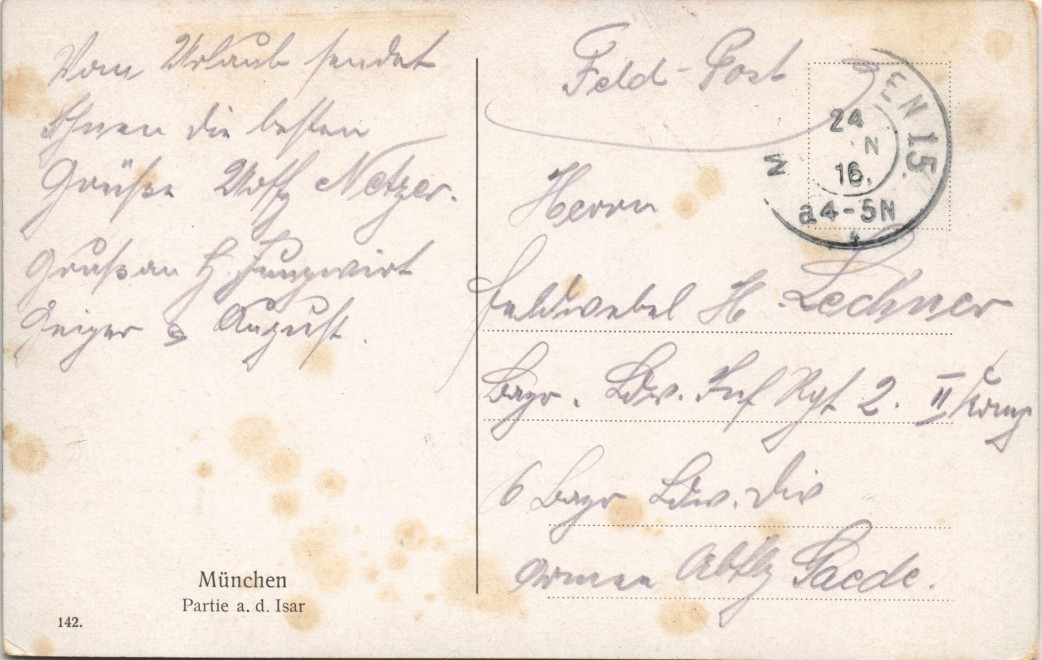 Vom Urlaub sendet
Ihnen die besten
Grüße Uoffz Netzer.
Gruß an H. Jungwirt
Geiger & August.
München
Partie a. d. Isar
142.
Feld-Post
M EN 15.
24
N
16.
a4-5N
Herrn
Feldwebel H Lechner
Bayr. Ldw. Inf Rgt 2. II Komp
6 Bayr Ldw. Div
Armee Abtlg Gaede.